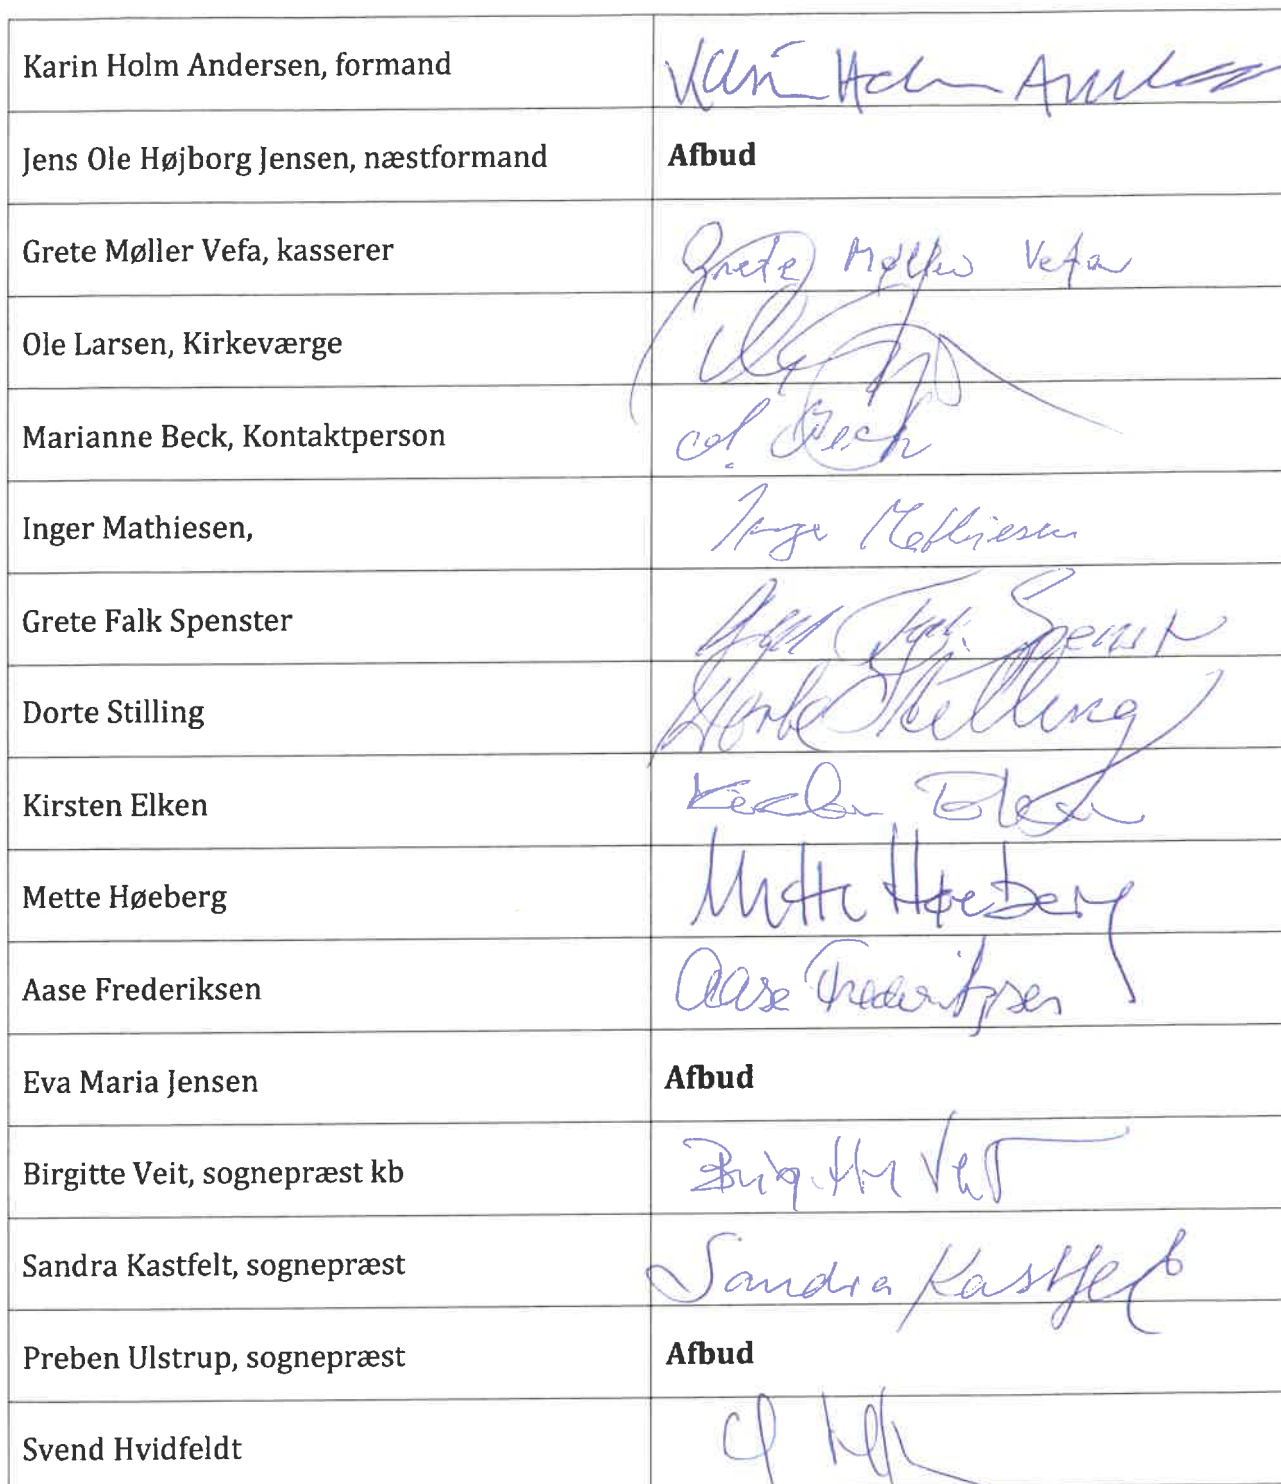 Karin Holm Andersen, formand Karin Holm Andersen
Jens Ole Højborg Jensen, næstformand Afbud
Grete Møller Vefa, kasserer Grete Møller Vefa
Ole Larsen, Kirkeværge
Marianne Beck, Kontaktperson Beck
Inger Mathiesen, Inger Mathiesen
Grete Falk Spenster
Dorte Stilling Dorte Stilling
Kirsten Elken Kirsten Elken
Mette Høeberg Mette Høeberg
Aase Frederiksen Aase Frederiksen
Eva Maria Jensen Afbud
Birgitte Veit, sognepræst kb Birgitte Veit
Sandra Kastfelt, sognepræst Sandra Kastfelt
Preben Ulstrup, sognepræst Afbud
Svend Hvidfeldt